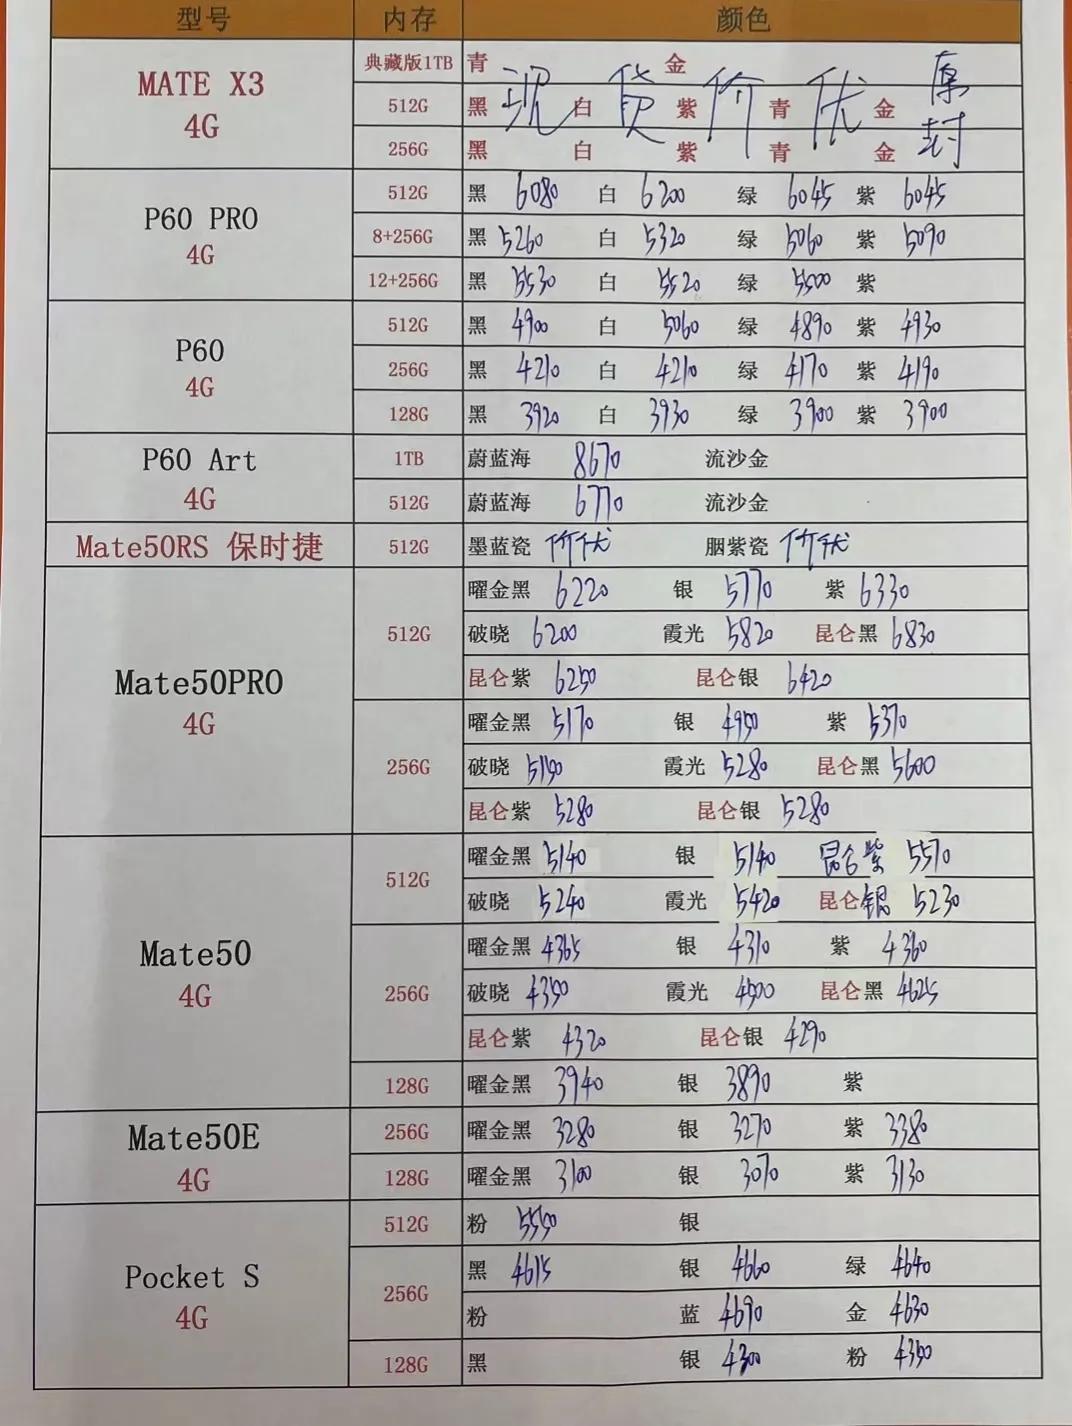 型号 内存 颜色
典藏版1TB 青 金
MATE X3 4G 512G 黑 白 紫 青 金
256G 黑 白 紫 青 金
现货价优 原封
512G 黑 6080 白 6200 绿 6045 紫 6045
P60 PRO 4G 8+256G 黑 5260 白 5320 绿 5060 紫 5090
12+256G 黑 5530 白 5520 绿 5500 紫
512G 黑 4900 白 5060 绿 4890 紫 4930
P60 4G 256G 黑 4210 白 4210 绿 4170 紫 4190
128G 黑 3920 白 3930 绿 3900 紫 3900
P60 Art 4G 1TB 蔚蓝海 8670 流沙金
512G 蔚蓝海 6770 流沙金
Mate50RS 保时捷 512G 墨蓝瓷 价优 胭紫瓷 价优
曜金黑 6220 银 5770 紫 6330
512G 破晓 6200 霞光 5820 昆仑黑 6830
昆仑紫 6250 昆仑银 6420
Mate50PRO 4G
曜金黑 5170 银 4950 紫 5370
256G 破晓 5150 霞光 5280 昆仑黑 5600
昆仑紫 5280 昆仑银 5280
512G 曜金黑 5140 银 5140 昆仑紫 5570
破晓 5240 霞光 5420 昆仑银 5230
Mate50 4G
曜金黑 4365 银 4310 紫 4360
256G 破晓 4350 霞光 4500 昆仑黑 4625
昆仑紫 4320 昆仑银 4290
128G 曜金黑 3940 银 3890 紫
Mate50E 4G 256G 曜金黑 3280 银 3270 紫 3380
128G 曜金黑 3100 银 3070 紫 3130
512G 粉 5550 银
Pocket S 4G 256G 黑 4615 银 4660 绿 4640
粉 蓝 4690 金 4630
128G 黑 银 4300 粉 4350